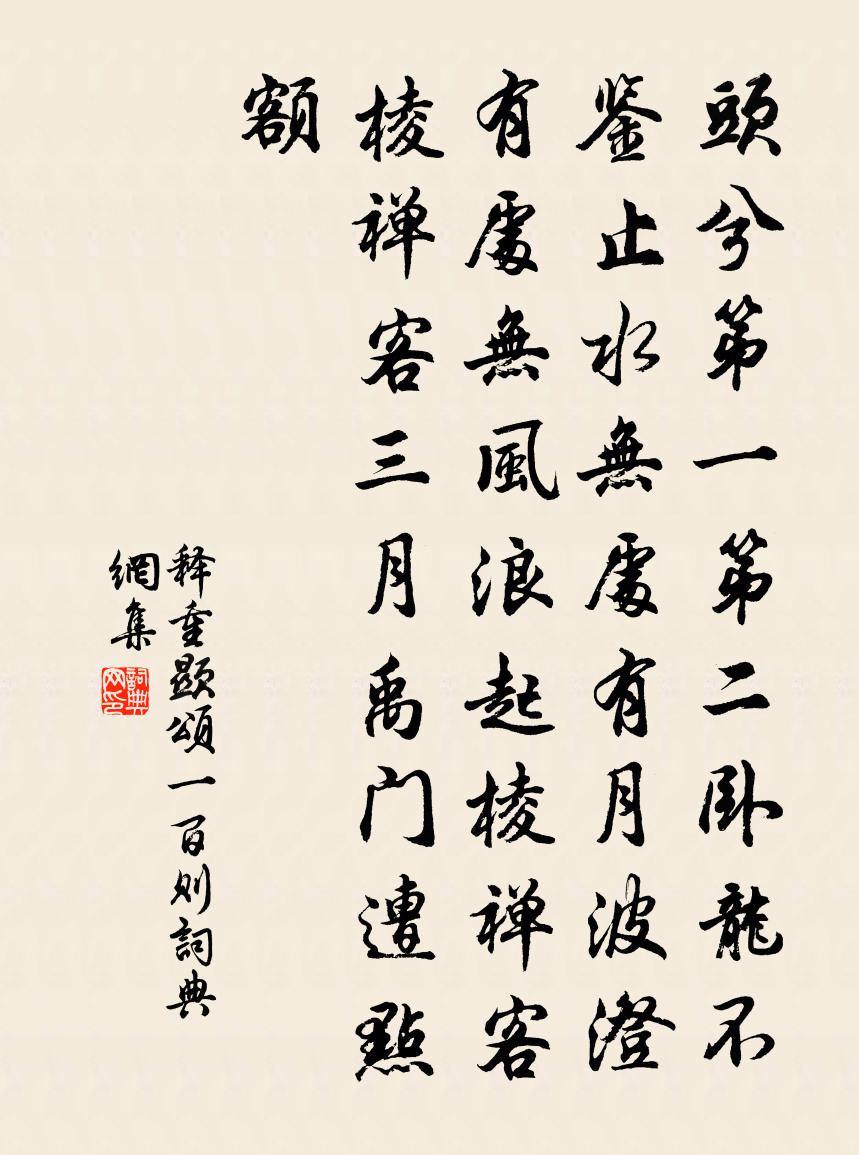 頭兮第一第二卧龍不
鉴止水無處有月波澄
有處無風浪起棱禅客
棱禅客三月禹门遭點
額
释重顯頌一百则詞典
網集
詞典网印